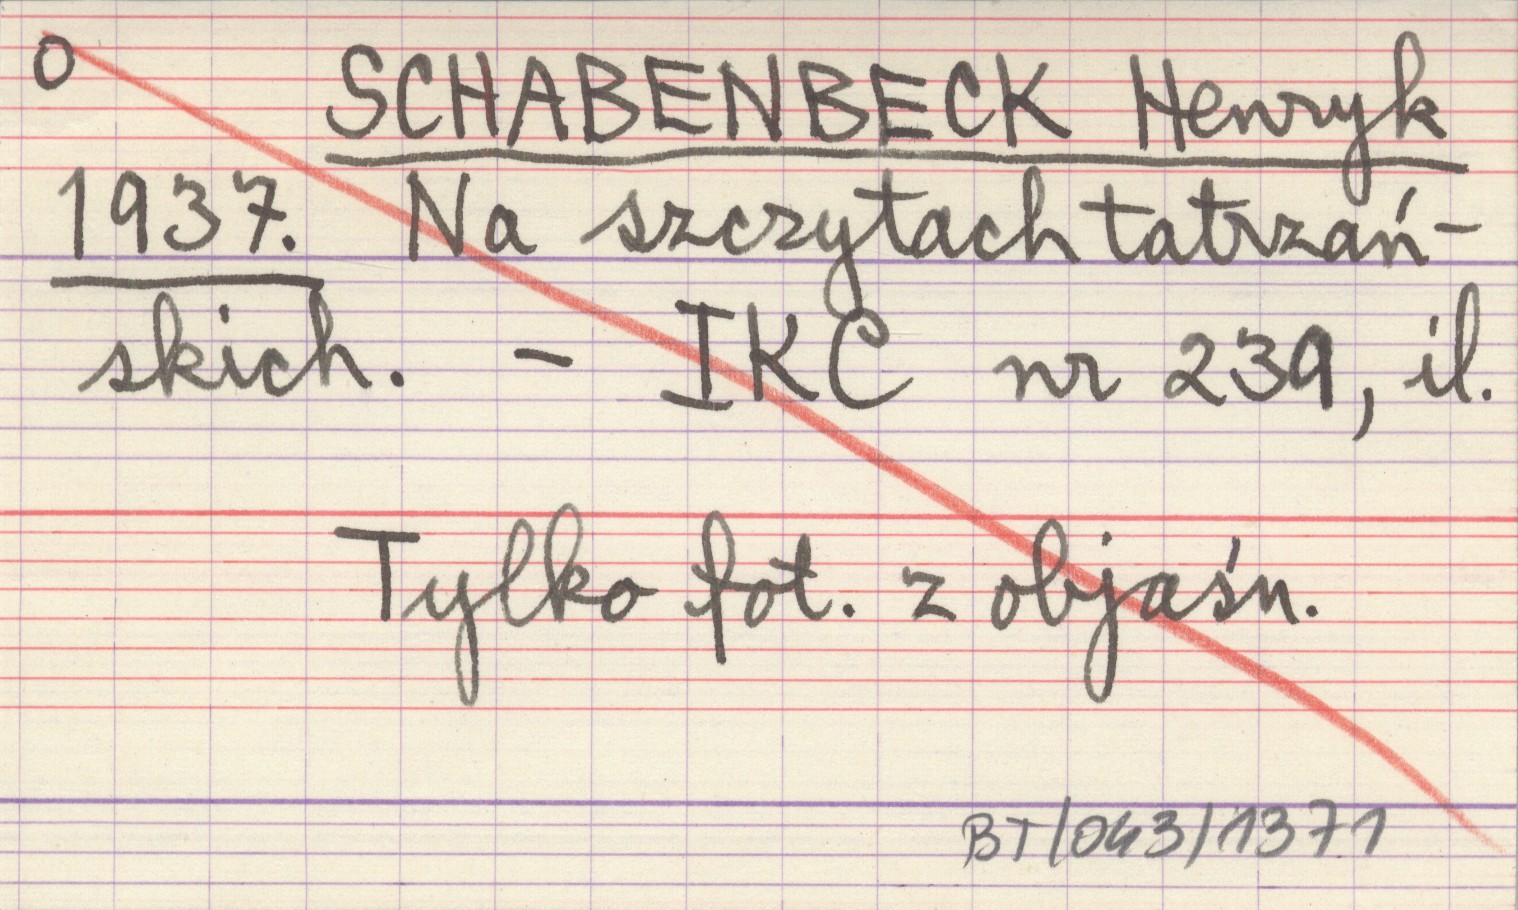 o SCHABENBECK Henryk
1937. Na szczytach tatrzań-
skich. - IKC nr 239, il.
Tylko fot. z objaśn.
BT/043/1371